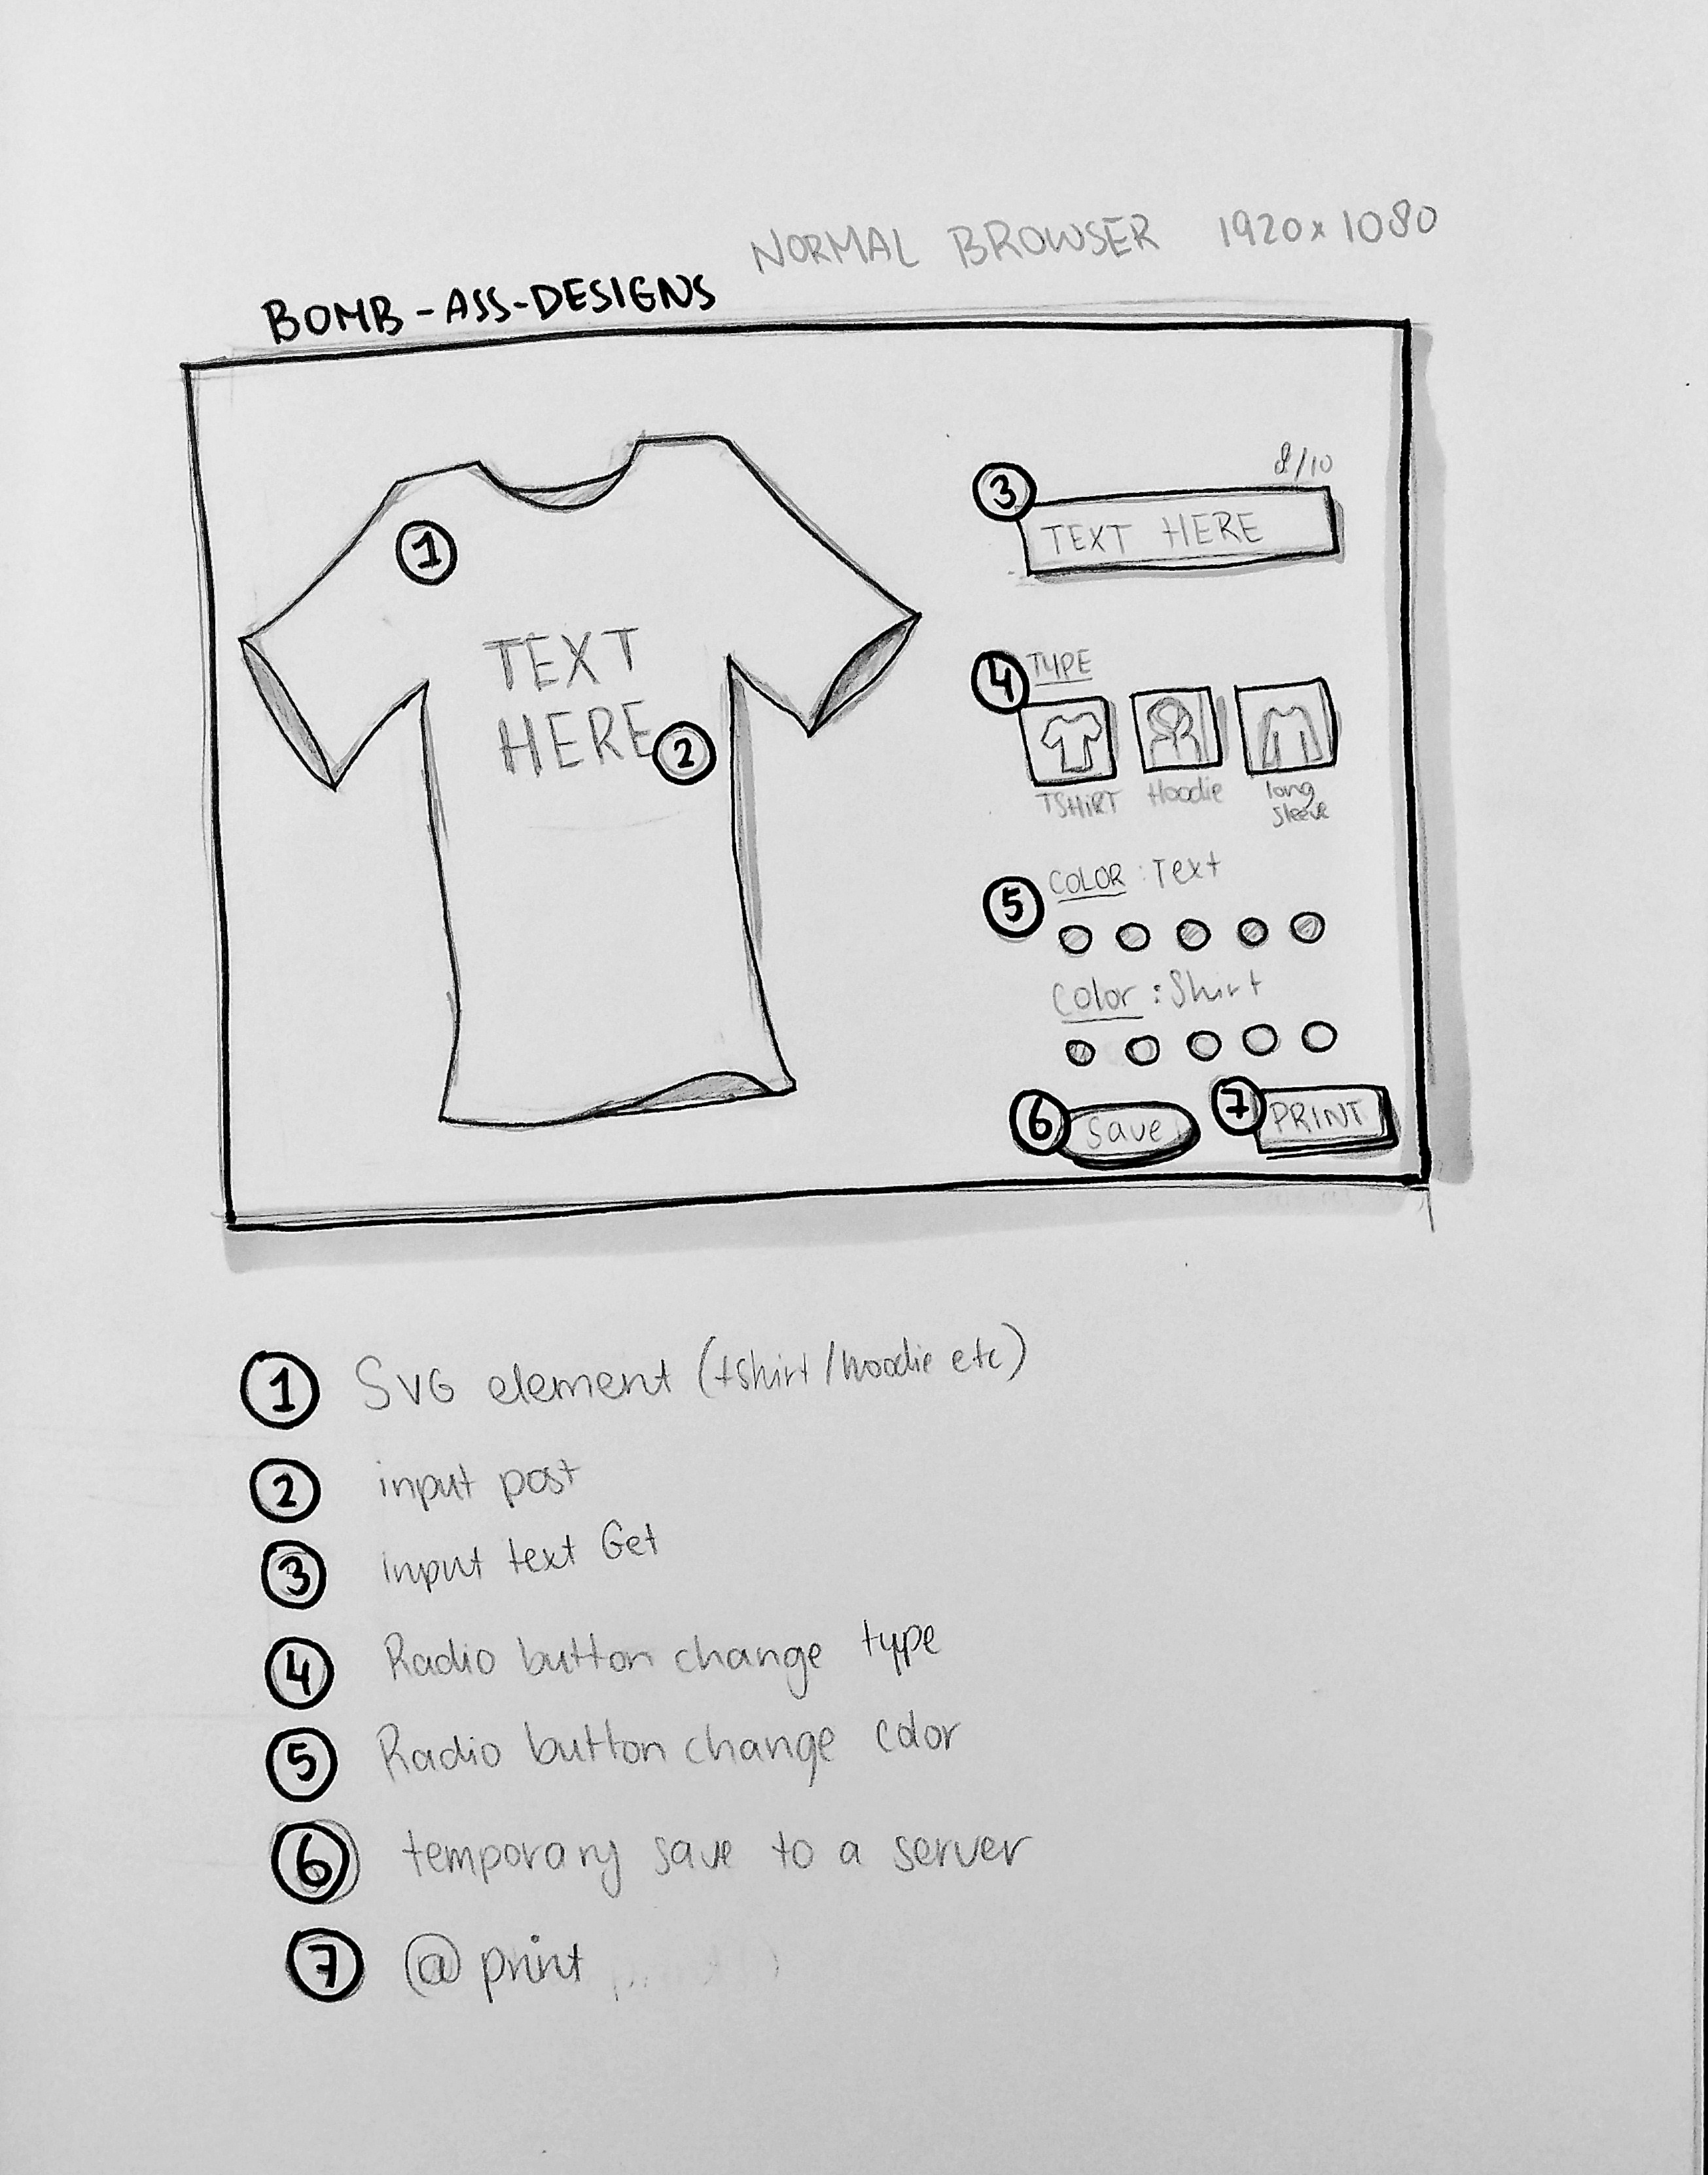 NORMAL BROWSER 1920x1080
BOMB-ASS-DESIGNS
1
TEXT
HERE
2
8/10
3
TEXT HERE
4 TYPE
TSHIRT Hoodie long
sleeve
5 COLOR : Text
Color : Shirt
6 Save 7 PRINT
1 SVG element (tshirt/hoodie etc)
2 input post
3 input text Get
4 Radio button change type
5 Radio button change color
6 temporary save to a server
7 @print